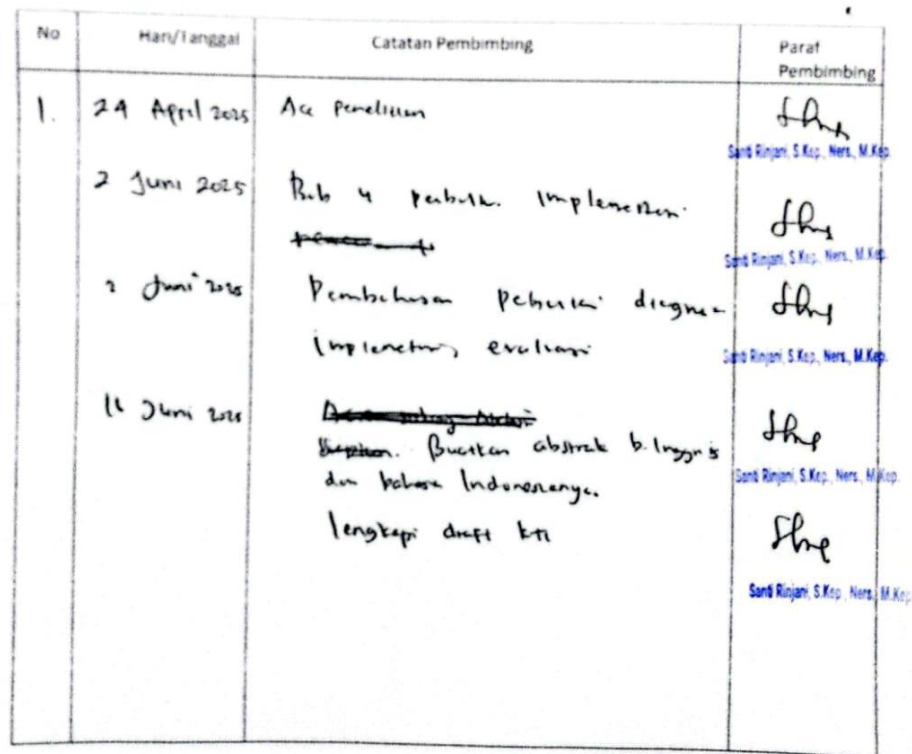 No Hari/Tanggal Catatan Pembimbing Paraf Pembimbing
1. 24 April 2025 Acc penelitian
Santi Rinjani, S.Kep., Ners., M.Kep.
2 Juni 2025 Bab 4 implementasi
Santi Rinjani, S.Kep., Ners., M.Kep.
2 Juni 2025 Pembahasan diagnosa
implementasi, evaluasi
Santi Rinjani, S.Kep., Ners., M.Kep.
Juni 2025
Buatkan abstrak b. Inggris
dan bahasa Indonesianya.
Santi Rinjani, S.Kep., Ners., M.Kep.
lengkapi draft KTI
Santi Rinjani, S.Kep., Ners., M.Kep.